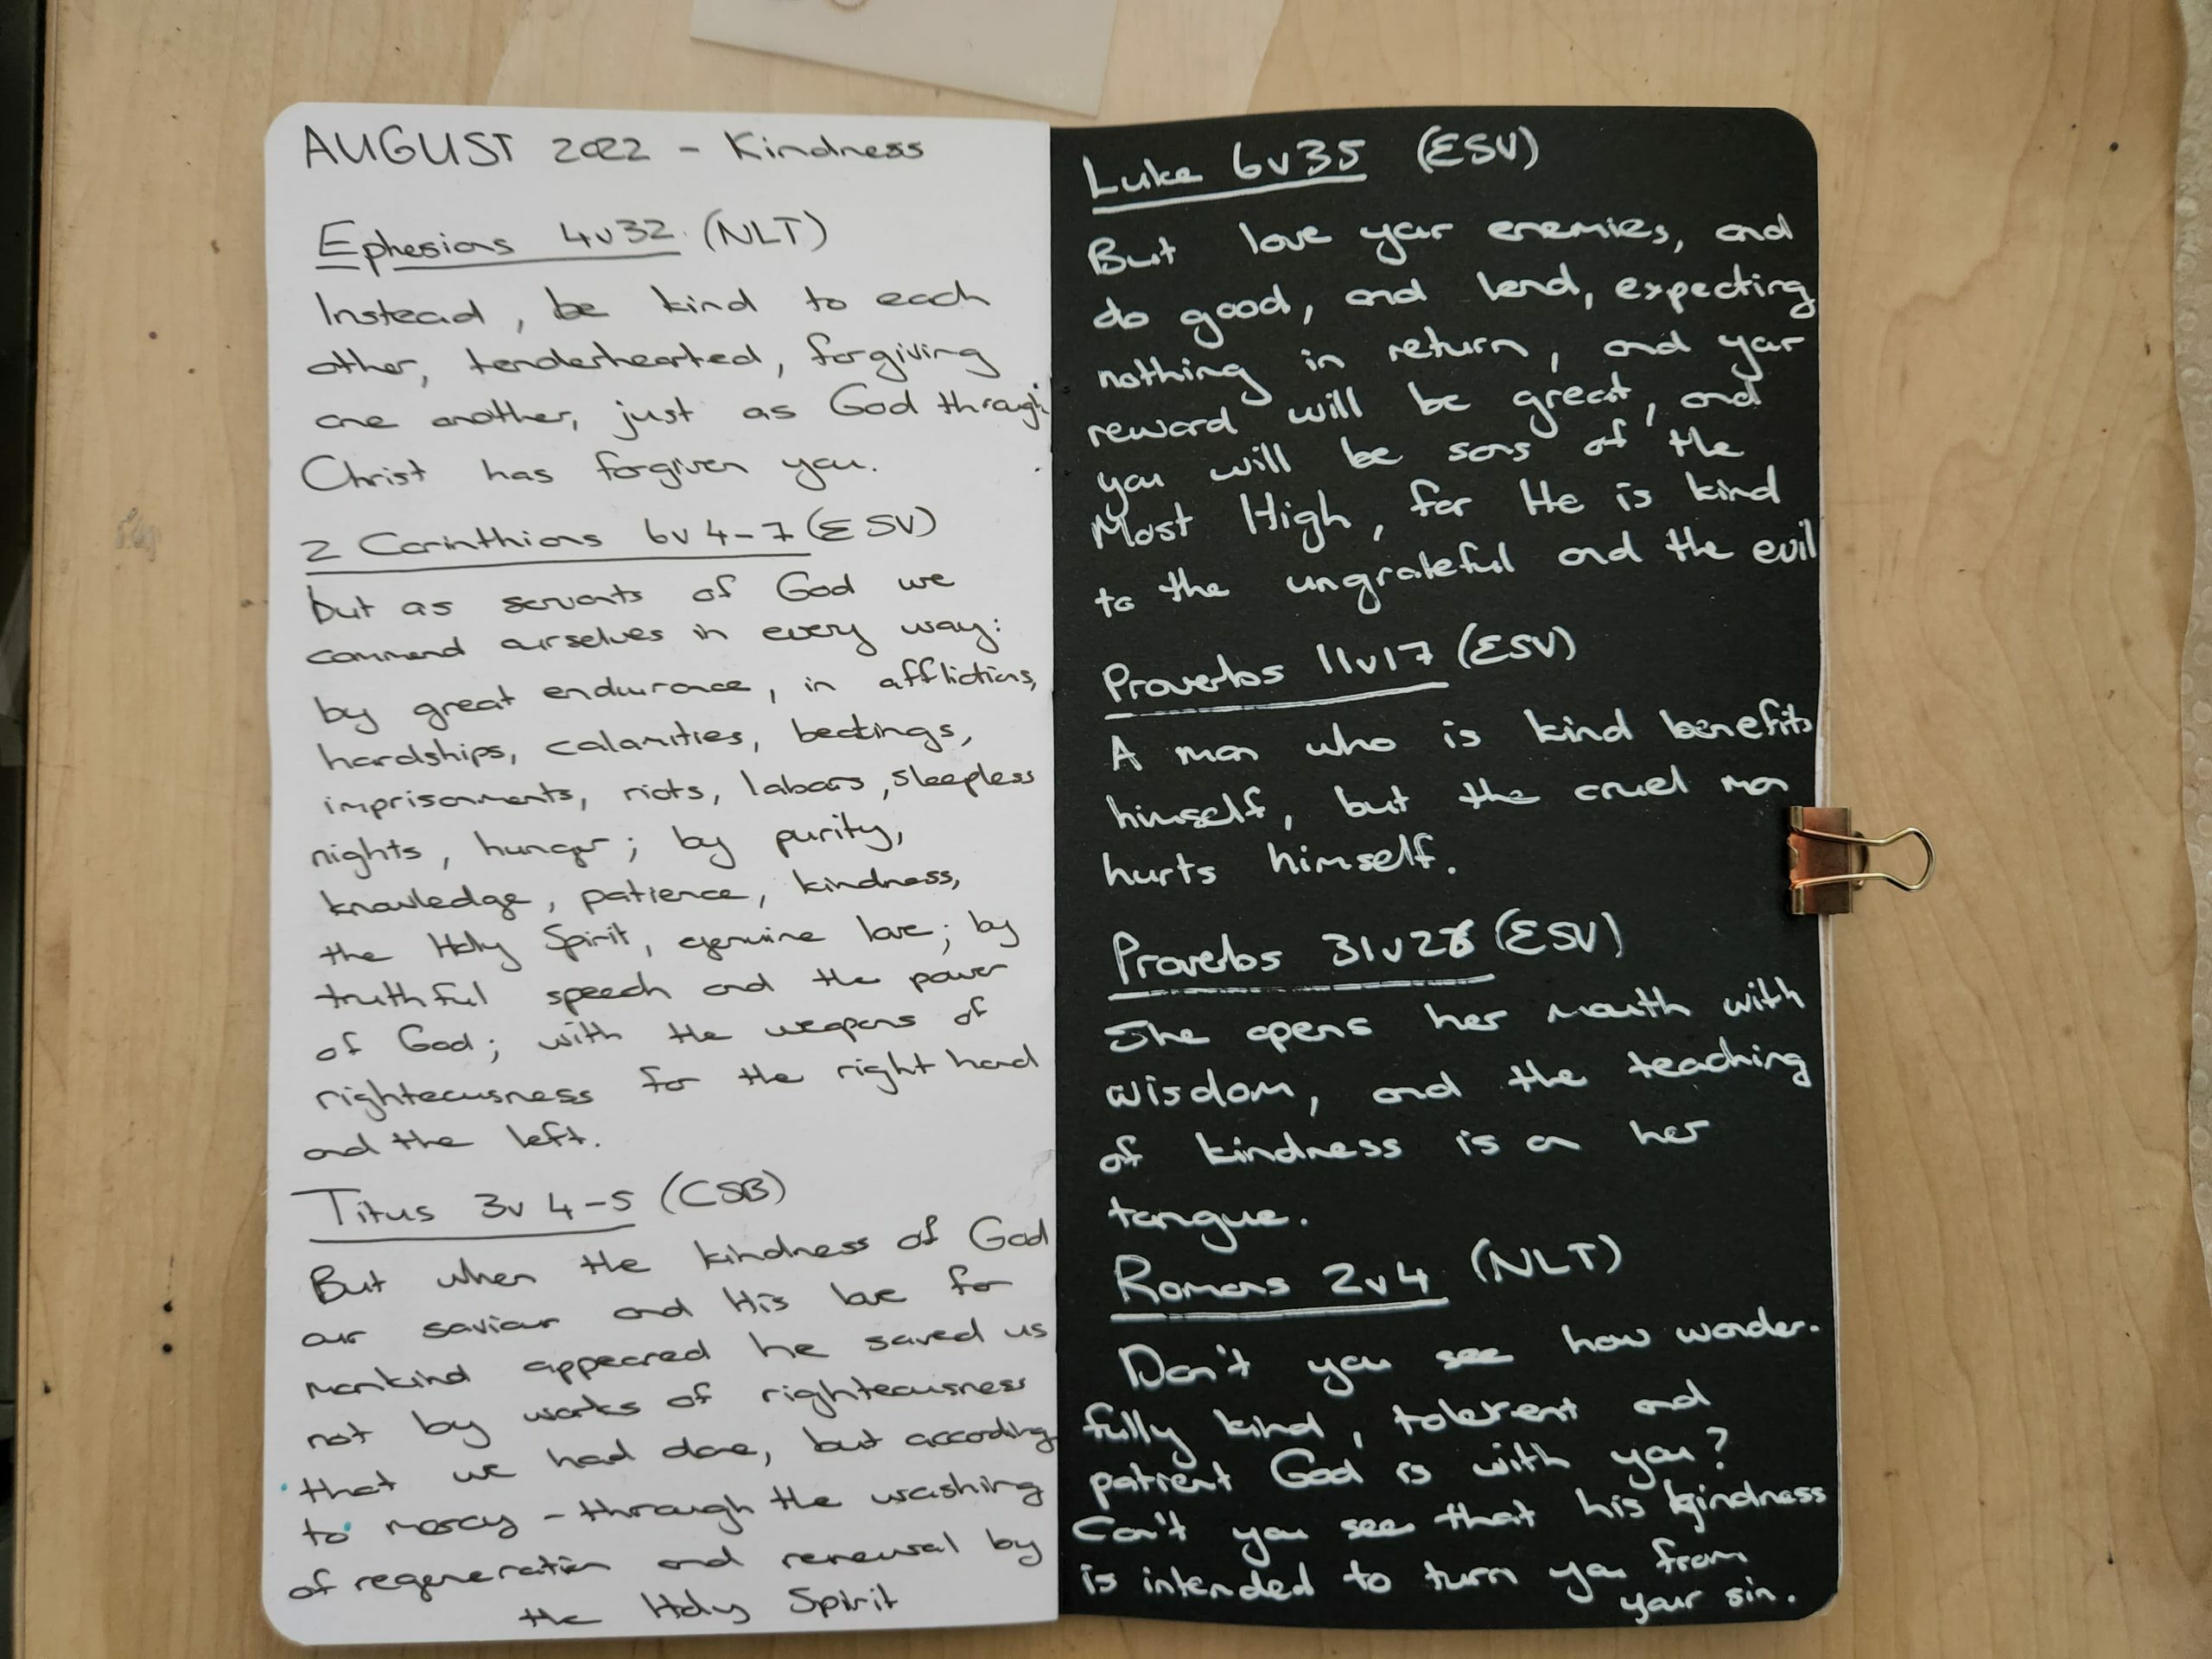 AUGUST 2022 - Kindness
Ephesians 4v32 (NLT)
Instead, be kind to each
other, tenderhearted, forgiving
one another, just as God through
Christ has forgiven you.
2 Corinthians 6v4-7 (ESV)
but as servants of God we
commend ourselves in every way:
by great endurance, in afflictions,
hardships, calamities, beatings,
imprisonments, riots, labors, sleepless
nights, hunger; by purity,
knowledge, patience, kindness,
the Holy Spirit, genuine love; by
truthful speech and the power
of God; with the weapons of
righteousness for the right hand
and the left.
Titus 3v4-5 (CSB)
But when the kindness of God
our saviour and His love for
mankind appeared he saved us
not by works of righteousness
that we had done, but according
to mercy - through the washing
of regeneration and renewal by
the Holy Spirit
Luke 6v35 (ESV)
But love your enemies, and
do good, and lend, expecting
nothing in return, and your
reward will be great, and
you will be sons of the
Most High, for He is kind
to the ungrateful and the evil
Proverbs 11v17 (ESV)
A man who is kind benefits
himself, but the cruel man
hurts himself.
Proverbs 31v26 (ESV)
She opens her mouth with
wisdom, and the teaching
of kindness is on her
tongue.
Romans 2v4 (NLT)
Don't you see how wonder-
fully kind, tolerent and
patient God is with you?
Can't you see that his kindness
is intended to turn you from
your sin.